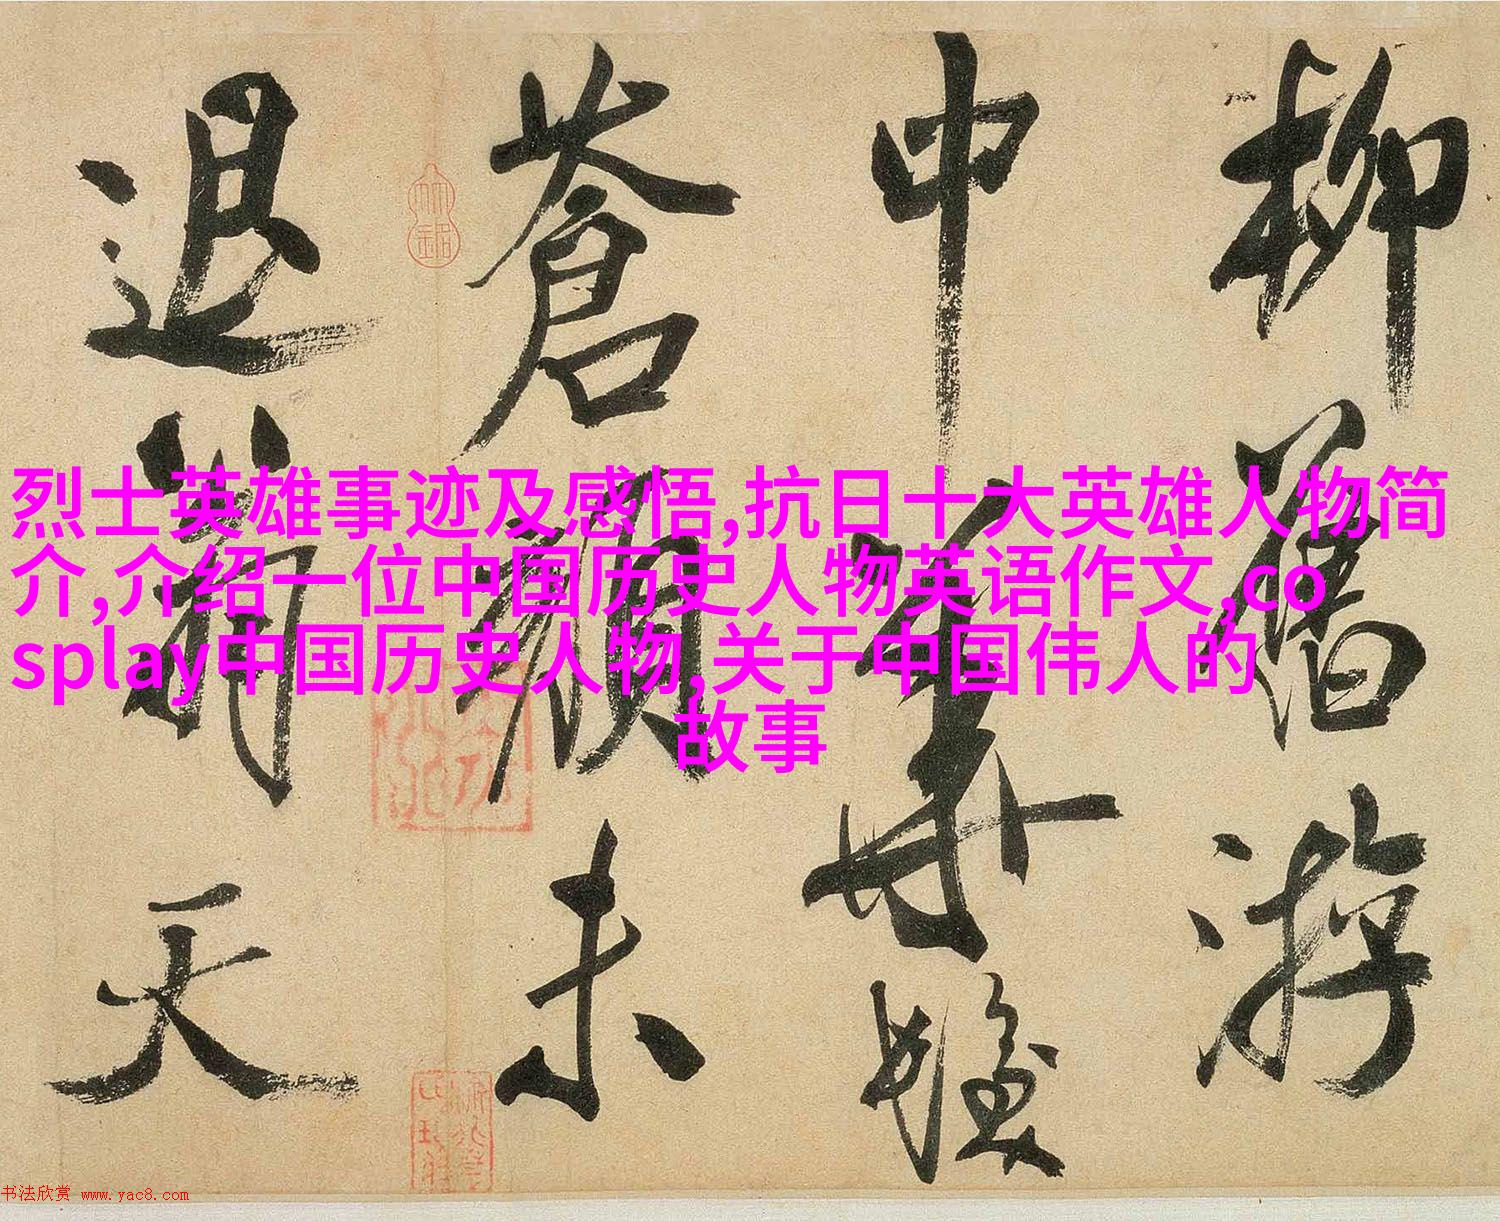 柳舊游
中華髮
蒼顏未
退翁天
烈士英雄事迹及感悟,抗日十大英雄人物简
介,介绍一位中国历史人物英语作文,co
splay中国历史人物,关于中国伟人的
故事
书法欣赏 www.yac8.com